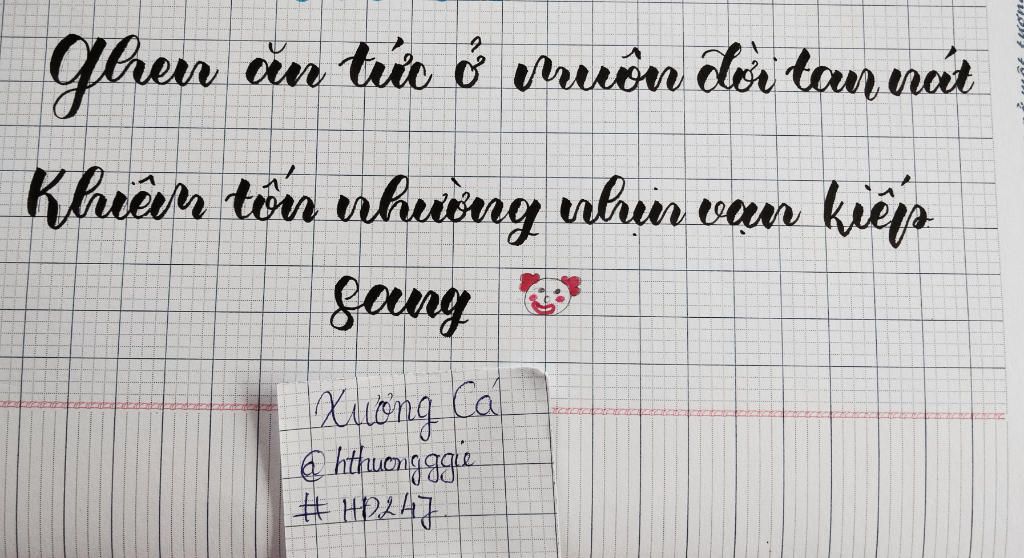 Ghen ăn tức ở muôn đời tan nát
Khiêm tốn nhường nhịn vạn kiếp
sang
Xương Cá
@hthuongggie
#HD247